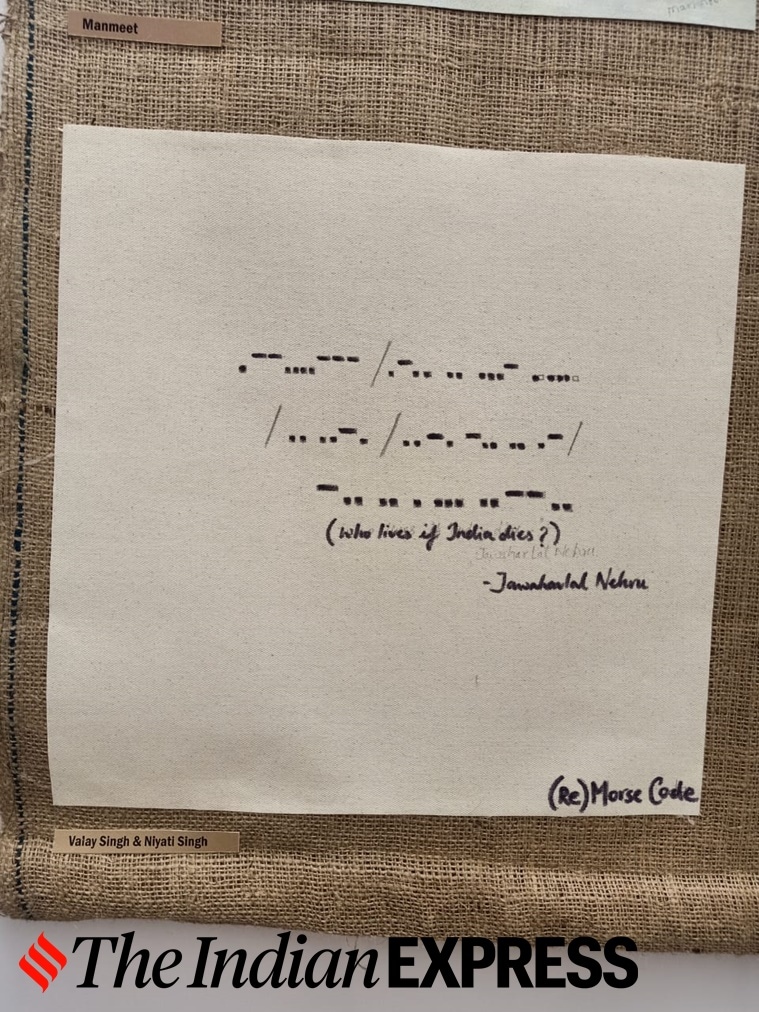 Manmeet
.-- .... --- / .-.. .. ...- ....
/ .. ..-. / ..-. -.. .. .- /
-.. .. . ... ..--..
(Who lives if India dies?)
Jawaharlal Nehru
-Jawaharlal Nehru
(Re)Morse Code
Valay Singh & Niyati Singh
The Indian EXPRESS